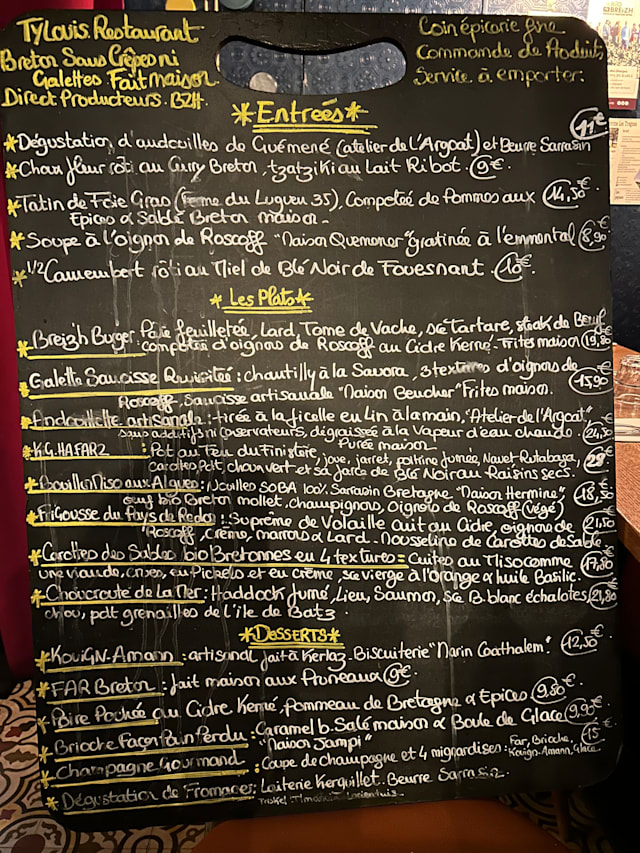 TyLouis Restaurant
Breton Sans Crêpes ni
Galettes Fait maison
Direct Producteurs. BZH.
Coin épicerie fine
Commande de Produits
Service à emporter.
*Entrées*
*Dégustation d'andouilles de Guémené (atelier de l'Argoat) et Beurre Sarrasin 11€
*Chou fleur rôti au Curry Breton, tzatziki au Lait Ribot. 9€.
*Tatin de Foie Gras (Ferme du Luguen 35), Compotée de Pommes aux 14,50€
Epices & Salde Breton maison -
*Soupe à l'oignon de Roscoff "Maison Quemener" gratinée à l'emmental 8,90€
*1/2 Camembert rôti au Miel de Blé Noir de Fouesnant. 10€.
*Les Plats*
*Breizh Burger: Pâte feuilletée, Lard, Tome de Vache, sce tartare, steak de Bœuf
compotée d'oignons de Roscoff au Cidre Kerné. Frites maison 19,80
*Galette Saucisse Revisitée: chantilly à la Savora, 3 textures d'oignons de
Roscoff, Saucisse artisanale "Maison Beucher" Frites maison. 15,90
*Andouillette artisanale: tirée à la ficelle en Lin à la main, "Atelier de l'Argoat",
sans additifs ni conservateurs, dégraissée à la Vapeur d'eau chaude. 24,50
Purée maison
*K.G. HA FARZ: Pot au Feu du Finistère, joue, jarret, poitrine fumée, Navet Rutabaga,
carottes, Pdt, chou vert et sa farce de Blé Noir au Raisins secs. 29€
*Bouillon Miso aux Algues: Nouilles SOBA 100% Sarrasin Bretagne "Maison Hermine"
œuf bio Breton mollet. champignons, Oignons de Roscoff (Végé) 18,50
*Frigousse du Pays de Redon: Suprême de Volaille cuit au Cidre, oignons de
Roscoff, Crème, marrons & Lard. Mousseline de Carottes de Sable 21,50
*Carottes des Sables bio Bretonnes en 4 textures = Cuites au Miso comme
une viande, crues, en Pickels et en crème, sce vierge à l'orange & huile Basilic. 17,80
*Choucroute de la Mer: Haddock fumé, Lieu, Saumon, sce B. blanc échalotes, 21,80
chou, pdt grenailles de l'île de Batz.
*DESSERTS*
*KouiGN-Amann: artisanal fait à Kerlaz - Biscuiterie "Marin Coathalem". 12,50€
*FAR Breton: fait maison aux Pruneaux 9€.
*Poire Pochée au Cidre Kerné, Pommeau de Bretagne & Epices 9,80€.
*Brioche Façon Pain Perdu: Caramel b. Salé maison & Boule de Glace 9,95€
"Maison Jampi"
*Champagne Gourmand: Coupe de champagne et 4 mignardises: Far, Brioche, 15€
Kouign-Amann, Glace
*Dégustation de Fromages: Laiterie Kerguillet. Beurre Sarrasin.